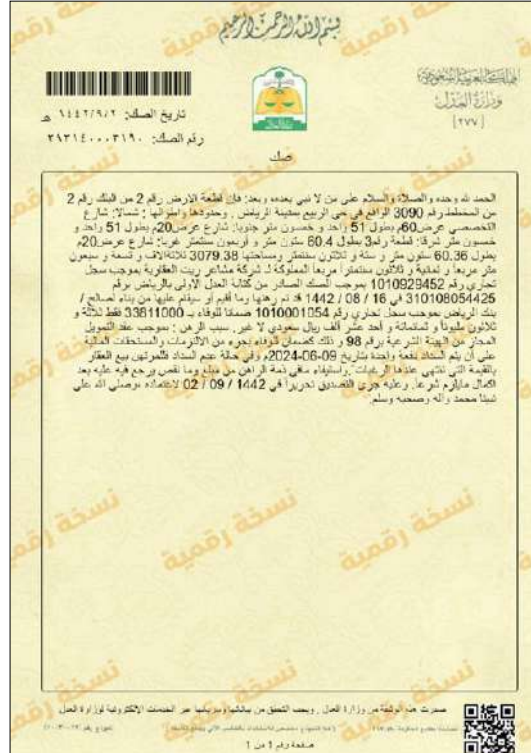 بسم الله الرحمن الرحيم
المملكة العربية السعودية
وزارة العدل
[٢٧٧]
تاريخ الصك: ١٤٤٢/٩/٢ هـ
رقم الصك: ٣٩٣١٤٠٠٠٣١٩٠
صك
الحمد لله وحده والصلاة والسلام على من لا نبي بعده، وبعد: فإن قطعة الارض رقم 2 من البلك رقم 2
من المخطط رقم 3090 الواقع في حي الربيع بمدينة الرياض . وحدودها واطوالها : شمالا: شارع
التخصصي عرض60م بطول 51 واحد و خمسون متر جنوبا: شارع عرض20م بطول 51 واحد و
خمسون متر شرقا: قطعة رقم3 بطول 60.4 ستون متر و أربعون سنتمتر غربا: شارع عرض20م
بطول 60.36 ستون متر و ستة و ثلاثون سنتمتر ومساحتها 3079.38 ثلاثةآلاف و تسعة و سبعون
متر مربعا و ثمانية و ثلاثون سنتمترا مربعا المملوكة لـ شركة مشاعر ريت العقارية بموجب سجل
تجاري رقم 1010929452 بموجب الصك الصادر من كتابة العدل الاولى بالرياض برقم
310108054425 في 16 / 08 / 1442 قد تم رهنها وما أقيم أو سيقام عليها من بناء لصالح /
بنك الرياض بموجب سجل تجاري رقم 1010001054 ضمانا للوفاء بـ 33811000 فقط ثلاثة و
ثلاثون مليوناً و ثمانمائة و أحد عشر ألف ريال سعودي لا غير. سبب الرهن : بموجب عقد التمويل
المجاز من الهيئة الشرعية برقم 98 و ذلك كضمان للوفاء بجزء من الالتزمات والمستحقات المالية
على أن يتم السداد دفعة واحدة بتاريخ 09-06-2024م وفي حالة عدم السداد فللمرتهن بيع العقار
بالقيمة التي تنتهي عندها الرغبات .واستيفاء مافي ذمة الراهن من مبلغ وما نقص يرجع فيه عليه بعد
اكمال مايلزم شرعا. وعليه جرى التصديق تحريرا في 02 / 09 / 1442 لاعتماده ،وصلى الله على
نبينا محمد وآله وصحبه وسلم.
نسخة رقمية
صدرت هذه الوثيقة من وزارة العدل , ويجب التحقق من بياناتها وسريانها عبر الخدمات الإلكترونية لوزارة العدل
صفحة رقم 1 من 1